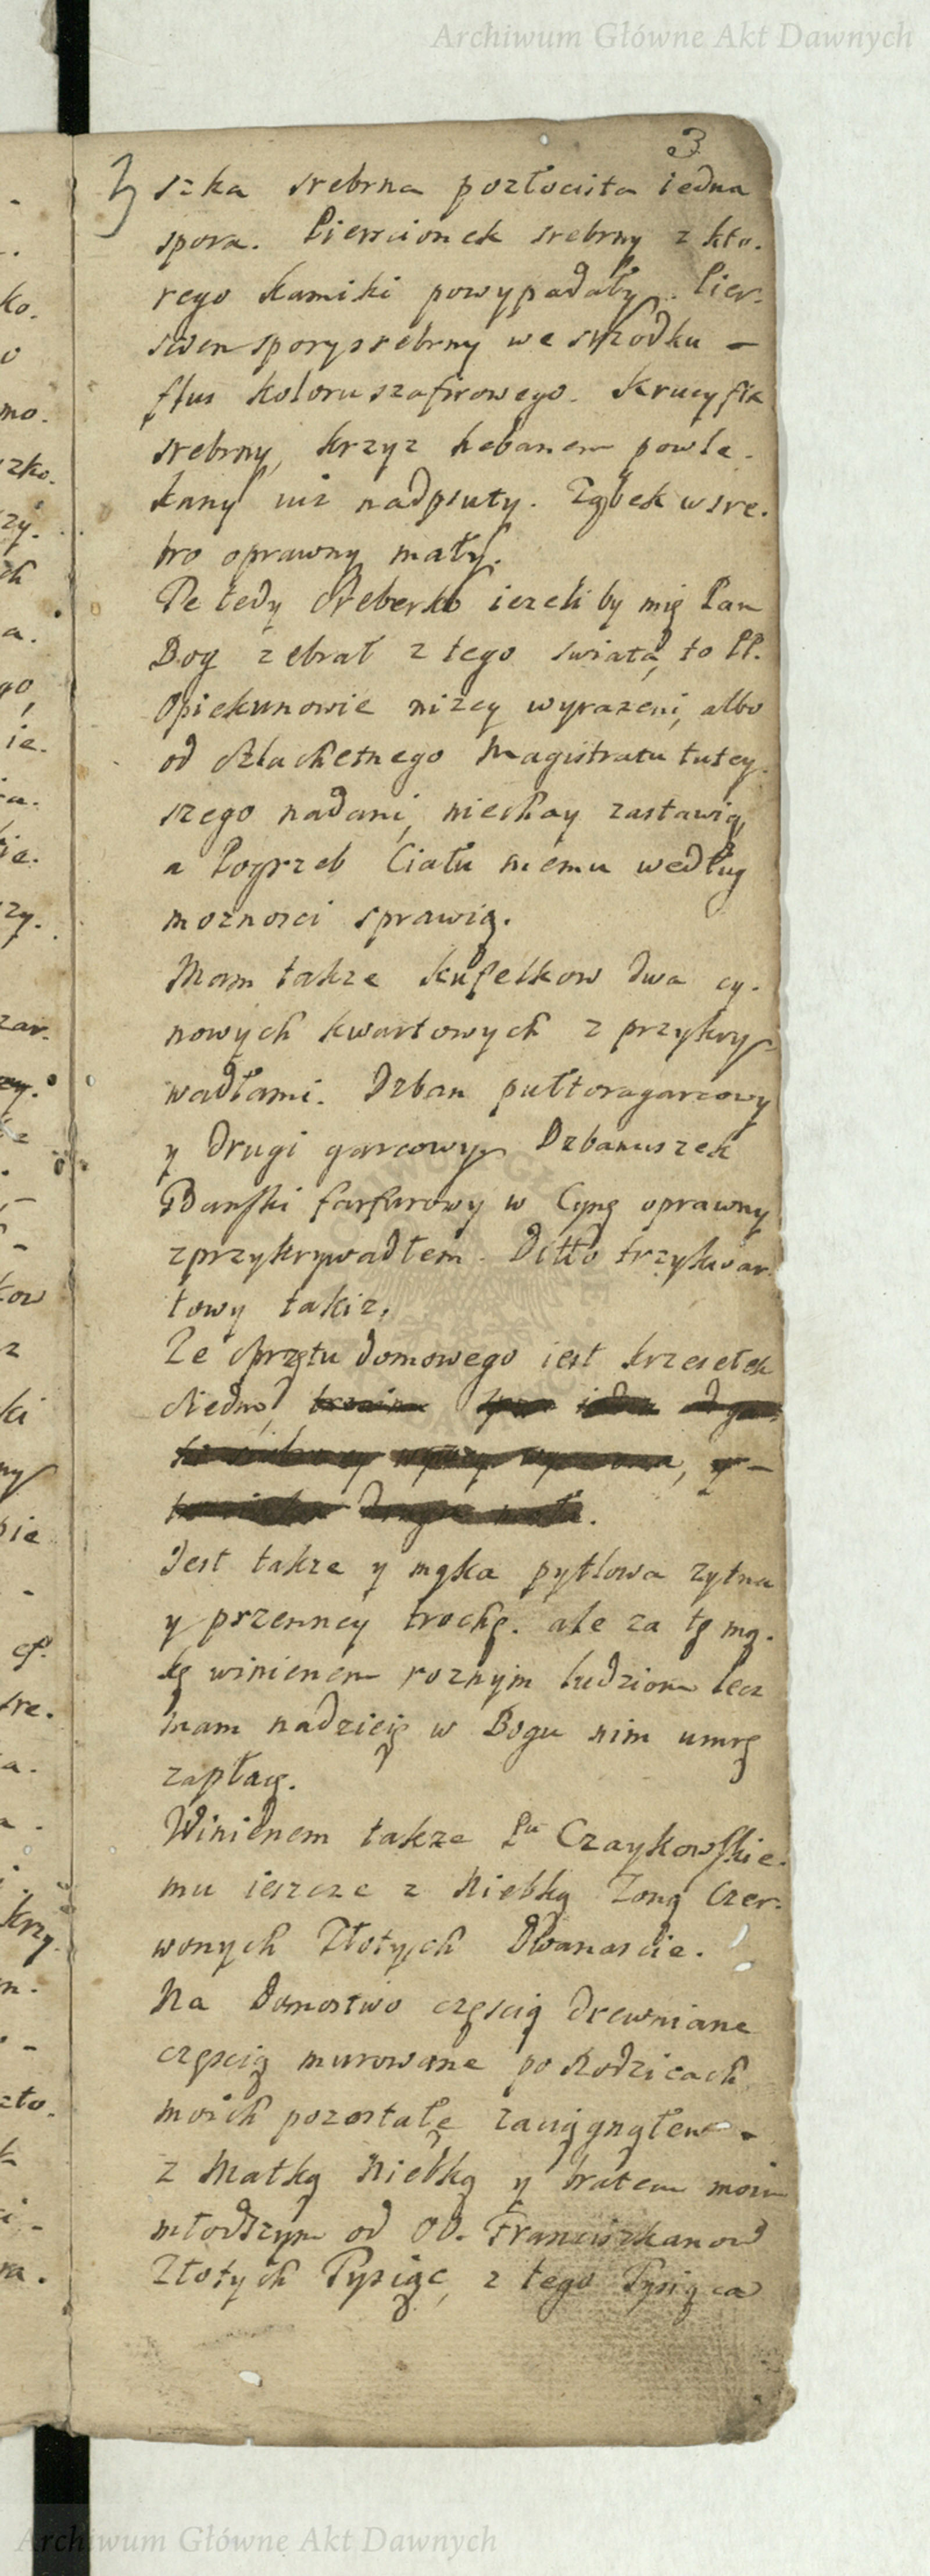 Archiwum Główne Akt Dawnych
3
szka srebrna pozłocista iedna
spora. Pierscionek srebrny z kto.
rego kamiki powypadały. Pier.
scien spory srebrny we srzodku –
flus koloru szafirowego. Krucyfix
srebrny, krzyz hebanem powle.
kany iuz nadpsuty. Ząbek w sre.
bro oprawny mały.
Te tedy Sreberko iezeli by mię Pan
Bog zebrał z tego swiata, to PP.
Opiekunowie nizey wyrazeni, albo
od Szlachetnego Magistratu tutey.
szego nadani, niechay zastawią
a Pogrzeb Ciału memu według
moznosci sprawią.
Mam takze kufelkow dwa cy.
nowych kwartowych z przykry
wadłami. Dzban pułtoragarcowy
y drugi garcowy. Dzbanuszek
Gdanski farfurowy w Cynę oprawny
z przykrywadłem. Ditto trzykwar.
towy takiz.
Ze Sprzętu domowego iest krzesełek
Siedm,
Jest takze y mąka pytlowa zytna
y przenney trochę. ale za tę mą.
kę winienem roznym ludziom lecz
mam nadzieię w Bogu nim umrę
zapłacę.
Winienem takze Pu Czaykowskie.
mu ieszcze z Niebką Zoną Czer.
wonych Złotych Dwanascie.
Na Domostwo częscią drewniane
częscią murowane po Rodzicach
moich pozostałe zaciągnąłem –
z Matką Niebką y bratem moim
młodszym od OO. Franciszkanow
Złotych Tysiąc, z tego Tysiąca
Archiwum Główne Akt Dawnych